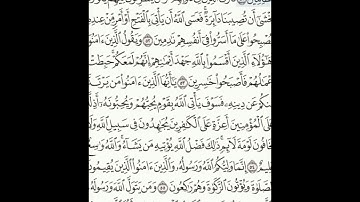 نَخْشَىٰٓ أَن تُصِيبَنَا دَآئِرَةٌ ۚ فَعَسَى ٱللَّهُ أَن يَأْتِىَ بِٱلْفَتْحِ أَوْ أَمْرٍ مِّنْ عِندِهِۦ
فَيُصْبِحُوا۟ عَلَىٰ مَآ أَسَرُّوا۟ فِىٓ أَنفُسِهِمْ نَٰدِمِينَ ٥٢ وَيَقُولُ ٱلَّذِينَ ءَامَنُوٓا۟
أَهَٰٓؤُلَآءِ ٱلَّذِينَ أَقْسَمُوا۟ بِٱللَّهِ جَهْدَ أَيْمَٰنِهِمْ ۙ إِنَّهُمْ لَمَعَكُمْ ۚ حَبِطَتْ
أَعْمَٰلُهُمْ فَأَصْبَحُوا۟ خَٰسِرِينَ ٥٣ يَٰٓأَيُّهَا ٱلَّذِينَ ءَامَنُوا۟ مَن يَرْتَدَّ
مِنكُمْ عَن دِينِهِۦ فَسَوْفَ يَأْتِى ٱللَّهُ بِقَوْمٍ يُحِبُّهُمْ وَيُحِبُّونَهُۥٓ أَذِلَّةٍ
عَلَى ٱلْمُؤْمِنِينَ أَعِزَّةٍ عَلَى ٱلْكَٰفِرِينَ يُجَٰهِدُونَ فِى سَبِيلِ ٱللَّهِ وَلَا
يَخَافُونَ لَوْمَةَ لَآئِمٍ ۚ ذَٰلِكَ فَضْلُ ٱللَّهِ يُؤْتِيهِ مَن يَشَآءُ ۚ وَٱللَّهُ وَٰسِعٌ
عَلِيمٌ ٥٤ إِنَّمَا وَلِيُّكُمُ ٱللَّهُ وَرَسُولُهُۥ وَٱلَّذِينَ ءَامَنُوا۟ ٱلَّذِينَ يُقِيمُونَ
ٱلصَّلَوٰةَ وَيُؤْتُونَ ٱلزَّكَوٰةَ وَهُمْ رَٰكِعُونَ ٥٥ وَمَن يَتَوَلَّ ٱللَّهَ وَرَسُولَهُۥ